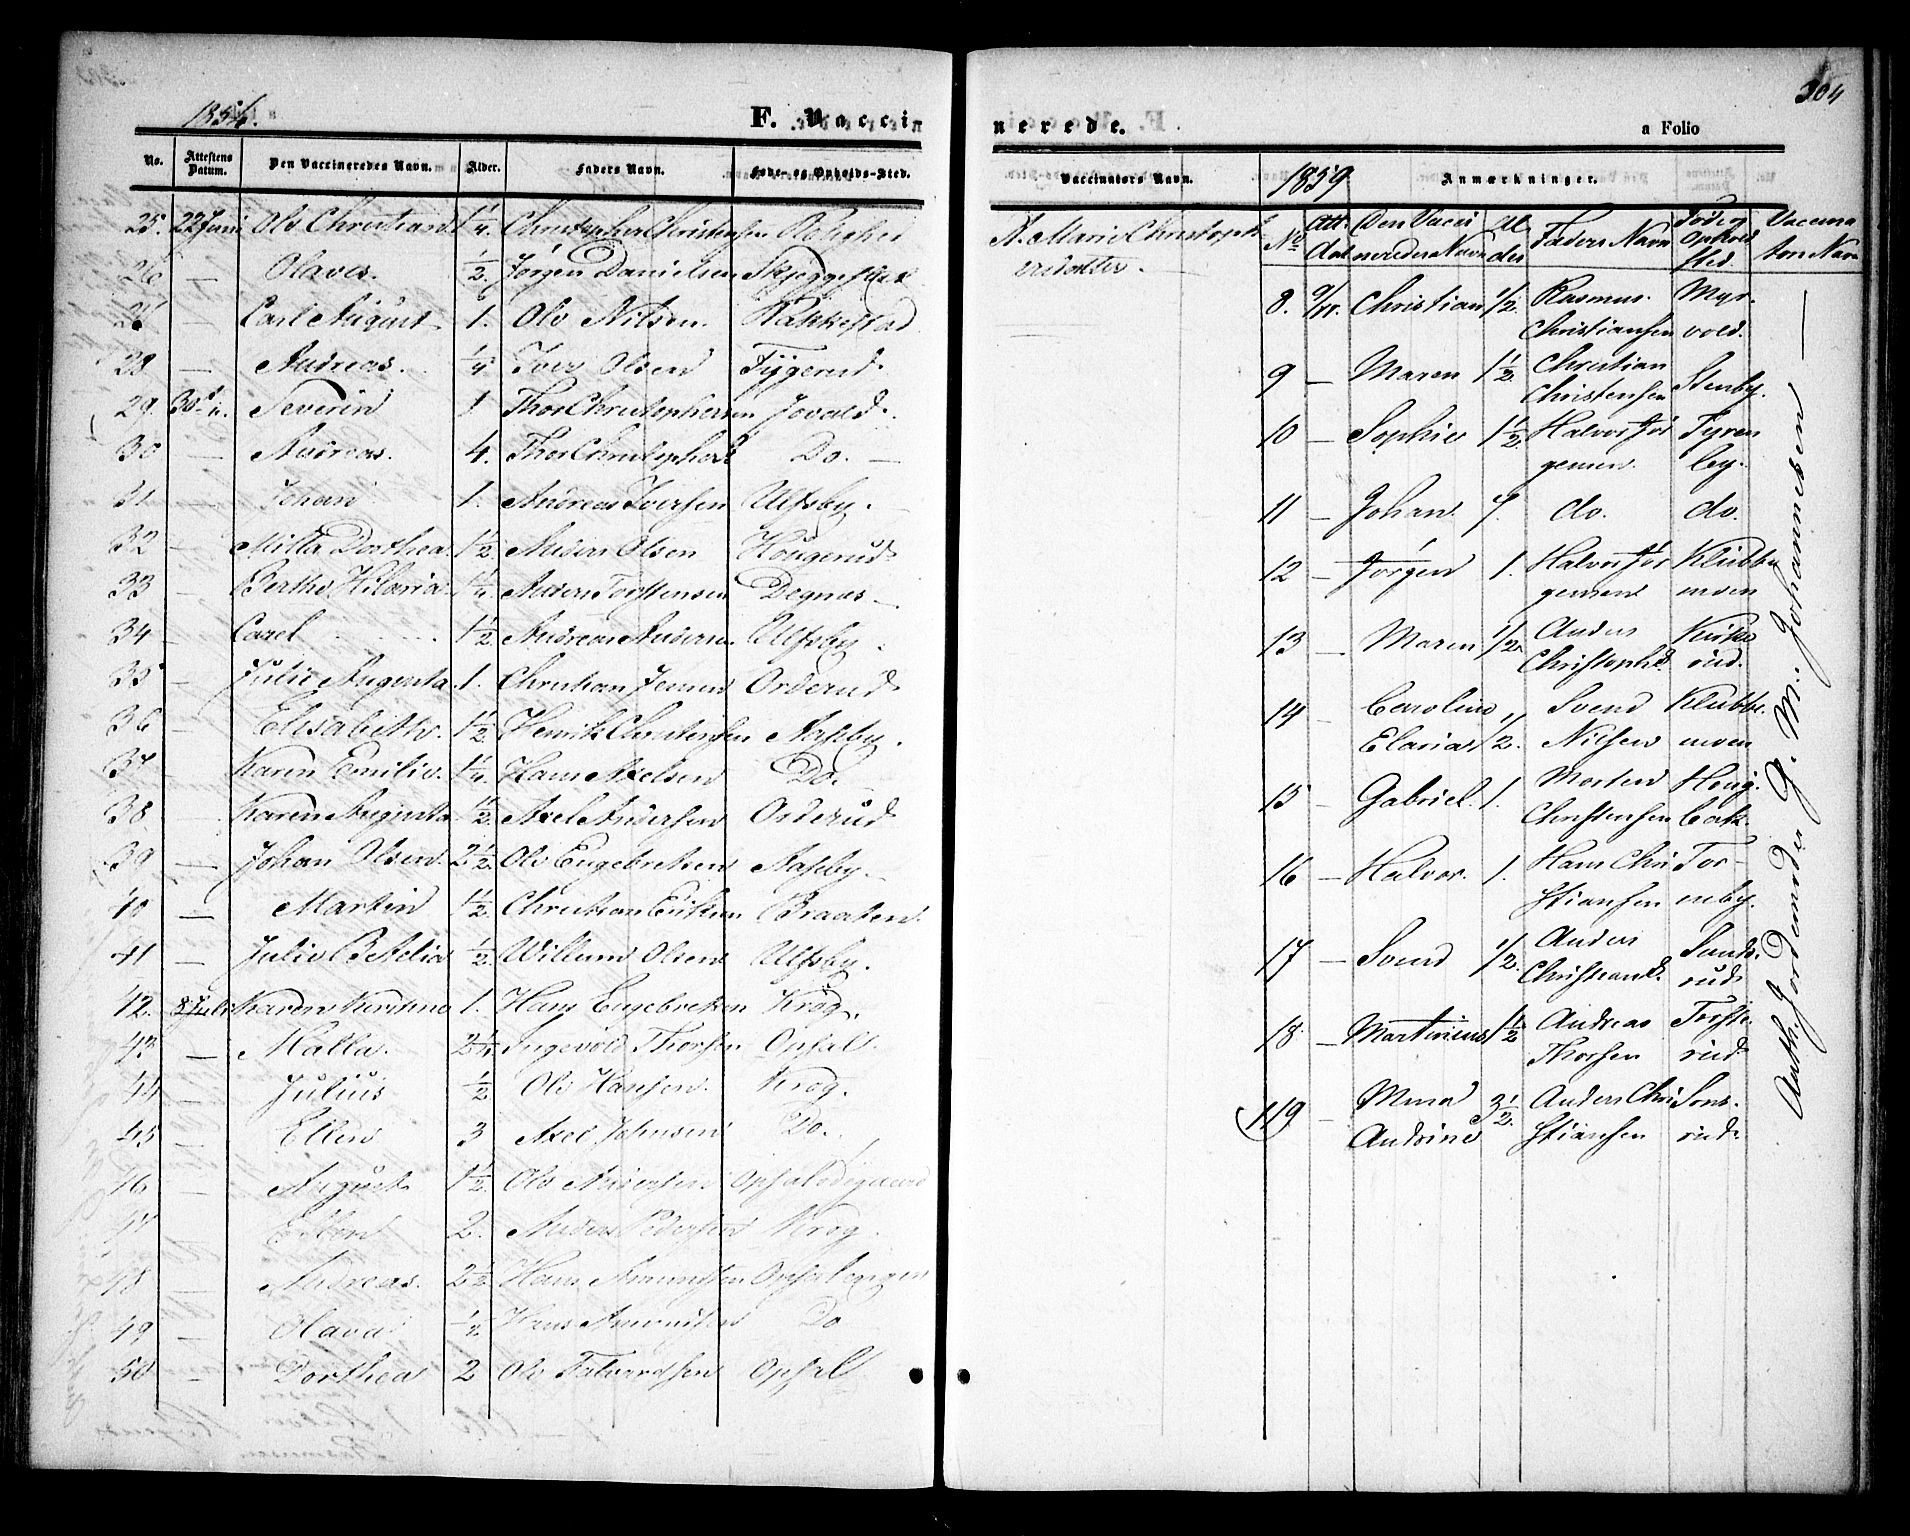 304
1854.
F. Vacci
nerede.
a Folio
No. Attestens Datum. Den Vaccineredes Navn. Alder. Faders Navn. Føde- og Opholds-Sted.
25. 22 Juni Ole Christian 1/4. Christopher Christensen
26 — Olaves. 1/2. Jørgen Danielsen
27 — Carl August 1. Ole Nilsen. Rakkestad
28 — Andreas. Iver Olsen
29. Severin 1 Thor Christophersen
30 — Andreas. 4. Thor Christophers Do. —
31 — Johan 1. Andreas Iversen Ulfsby.
32 — Milla Dorthea 1 1/2. Anders Olsen Hougerud
33 — Berthe Hilaria 1/4. Anders Torstensen Degnæs
34 — Carel 1 1/2. Andreas Andersen Ulfsby.
35 — Julie Augusta. 1. Christian Jensen Orderud
36 — Elisabeth. 1 1/2. Henrik Christensen Aaseby.
37 — Karen Emilie. 1 1/4. Hans Axelsen Do.
38. Karen Augusta 1 1/2. Axel Andersen Orderud
39 — Johan Olsen. 2 1/2. Ole Engebretsen Aaseby.
40 — Martin 1 1/2. Christian Eriksen Braaten.
41 — Julie 1/2. Willum Olsen Ulfsby.
42. 8 Juli Karen Kirstine 1. Hans Engebretsen Krog.
43 — Malla. Ingevold Thorsen Opsal.
44 — Julius 1/2 Ole Hansen. Krog.
45 — Ellen 3 Axel Johnsen Do.
46 — August 1 1/2. Ole Andersen Opsalødegaard
47 — Ellen 2. Anders Pedersen Krog.
48 — Andreas. 2 1/2. Hans Amundsen Opsalengen
49 — Olava Hans Amundsen Do
50 — Dorthea 2 Ole Opsal
Vaccinators Navn. 1859 Anmærkninger.
A. Marie Christoph-
ersdatter.
No Att. Dat Den Vacci neredes Navn Al der Faders Navn Føde og Ophold Sted. Vaccina tors Navn
8. 9/11. Christian 1/2. Rasmus Christiansen Myr vold.
9 — Maren 1 1/2. Christian Christensen Stenby.
10 — Sophie 1 1/2. Halvor Jør gensen. Tyren by.
11 — Johan. 7. do. do.
12 — Jørgen 1. Halvor Jør gensen Klubbe moen
13 — Maren 1/2. Anders Christophs. Kirke rud.
14 — Caroline Elarias 1/2. Svend Nilsen Klubbe moen
15 — Gabriel. 1. Morten Christensen Houg bak.
16 — Halvor. 1. Hans Chri stiansen Tor- enby.
17 — Svend 1/2. Anders Christians. Sands. rud
18 — Martinius 1 1/2 Andreas Thorsen Torste rud
19 — Mina Andrine 3 1/2. Anders Chri stiansen Sons. rud.
Auth. Jordemoder G. M. Johannesen —